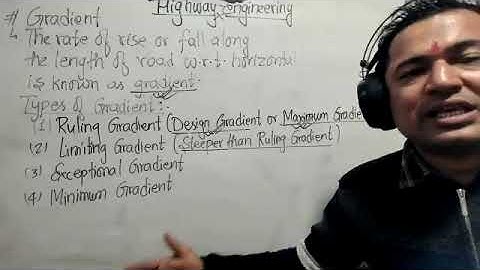 Highway Engineering
# Gradient
↳ The rate of rise or fall along
the length of road w.r.t. horizontal
is known as gradient.
Types of Gradient:-
(1) Ruling Gradient (Design Gradient or Maximum Gradie
(2) Limiting Gradient (Steeper than Ruling Gradient)
(3) Exceptional Gradient
(4) Minimum Gradient